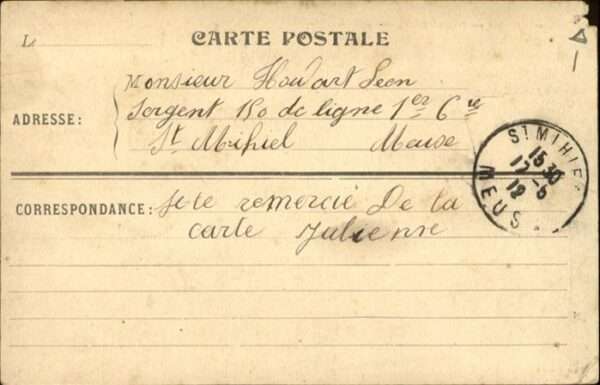 L
CARTE POSTALE
Monsieur Houart Leon
ADRESSE: Sergent 150 de ligne 1er Cie
St Mihiel Meuse
ST MIHIEL
15 30
17-5
12
MEUSE
CORRESPONDANCE: Je te remercie De la
carte Julienne